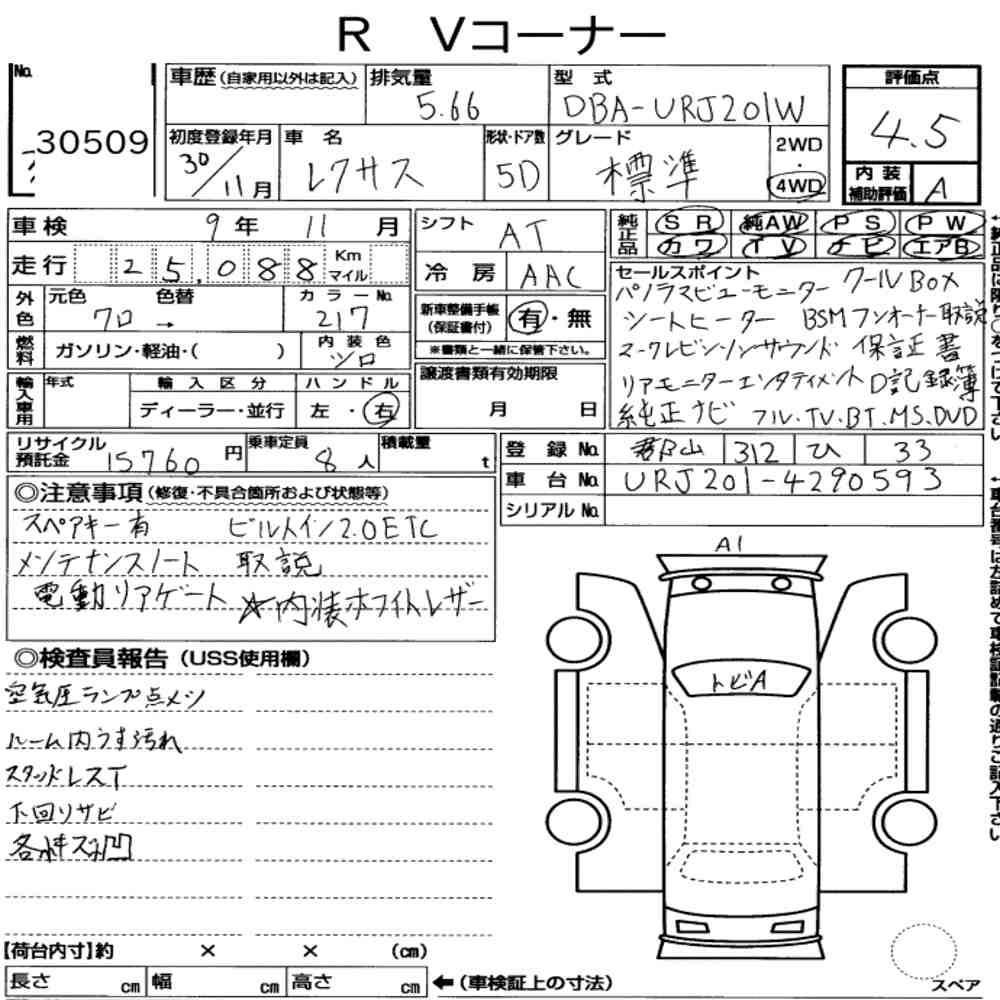 R Vコーナー
No.
30509
車歴 (自家用以外は記入)
排気量
5.66
型式
DBA-URJ201W
評価点
4.5
初度登録年月
30/11月
車名
レクサス
形状・ドア数
5D
グレード
標準
2WD
・
4WD
内装
補助評価
A
車検 9年 11月
走行 25,088 Km
マイル
シフト AT
冷房 AAC
純正品
SR 純AW PS PW
カワ TV ナビ エアB
外色 元色 色替 カラーNo.
クロ → 217
燃料 ガソリン・軽油・( )
内装色
ツロ
新車整備手帳
(保証書付)
有・無
※書類と一緒に保管下さい。
セールスポイント クールBOX
パノラマビューモニター
シートヒーター BSM フンオーナー取説
マークレビンソンサウンド 保証書
リアモニターエンタティメント D記録簿
純正ナビ フル.TV.BT.MS.DVD
輸入車用 年式 輸入区分 ハンドル
ディーラー・並行 左・右
譲渡書類有効期限
月 日
リサイクル
預託金
15760円
乗車定員
8人
積載量
t
登録No. 郡山 312 ひ 33
車台No. URJ201-4290593
シリアルNo.
◎注意事項 (修復・不具合箇所および状態等)
スペアキー有 ビルトイン2.0ETC
メンテナンスノート 取説
電動リアゲート ☆内装ホワイトレザー
◎検査員報告 (USS使用欄)
空気圧ランプ点メツ
ルーム内うす汚れ
スタッドレスT
下回リサビ
各キズ凹
A1
トビA
【荷台内寸】約 × × (cm)
長さ cm 幅 cm 高さ cm ←(車検証上の寸法)
スペア
↑純正品に限り○をつけて下さい
↑車台番号は左詰めで車検証記載の通りご記入下さい